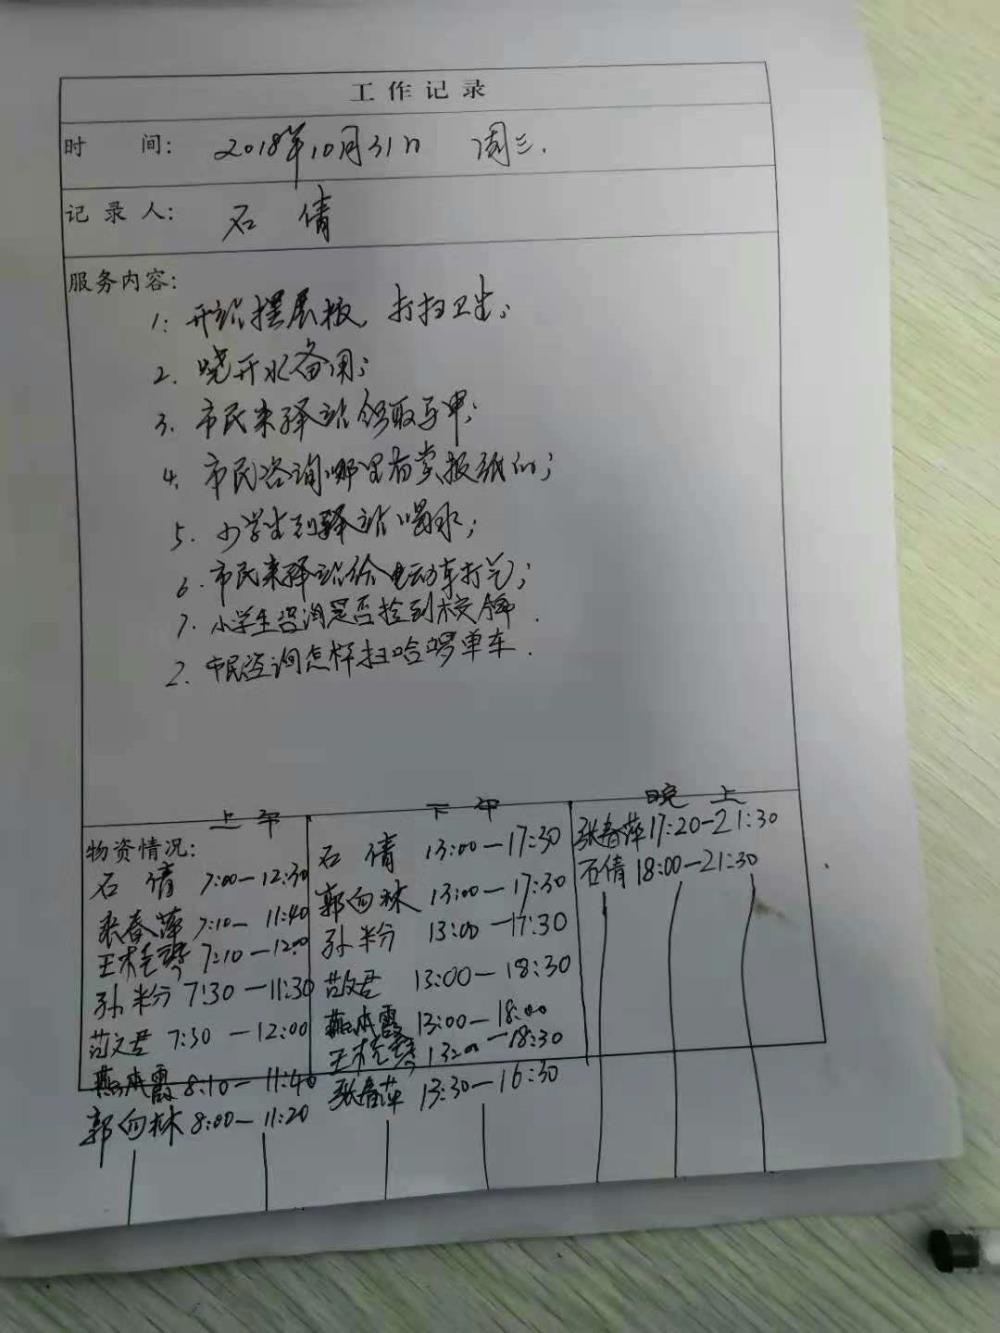 工作记录
时 间: 2018年10月31日 周三.
记录人: 石倩
服务内容:
1. 开站摆展板、打扫卫生;
2. 烧开水备用;
3. 市民来驿站领取马甲;
4. 市民咨询哪里有卖报纸的;
5. 小学生到驿站喝水;
6. 市民来驿站给电动车打气;
7. 小学生咨询是否捡到校牌.
2. 市民咨询怎样扫哈啰单车.
上午 下午 晚上
物资情况:
石倩 7:00—12:30
张春萍 7:10—11:40
7:10—12:00
孙半分 7:30—11:30
范文君 7:30—12:00
燕成霞 8:10—11:40
郭向林 8:00—11:20
石倩 13:00—17:30
郭向林 13:00—17:30
孙半分 13:00—17:30
范文君 13:00—18:30
燕成霞 13:00—18:00
13:00—18:30
张春萍 13:30—16:30
张春萍 17:20—21:30
石倩 18:00—21:30